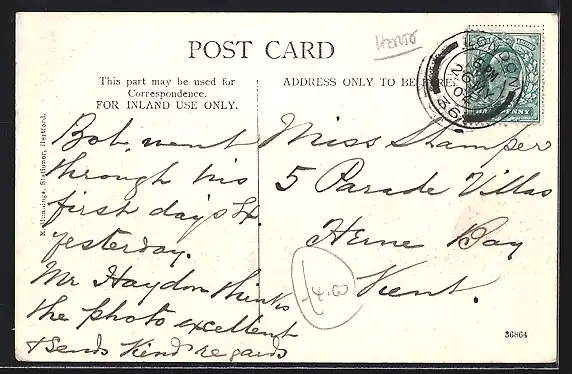 Herts
POST CARD
This part may be used for
Correspondence.
FOR INLAND USE ONLY.
ADDRESS ONLY TO BE
LONDON
Bob, went
through his
first day's
yesterday.
Mr Haydon thinks
the photo excellent
& sends kind regards
Miss Stamper
5 Parade Villas
Herne Bay
Kent.
£4.00
Stationer, Hertford.
36864